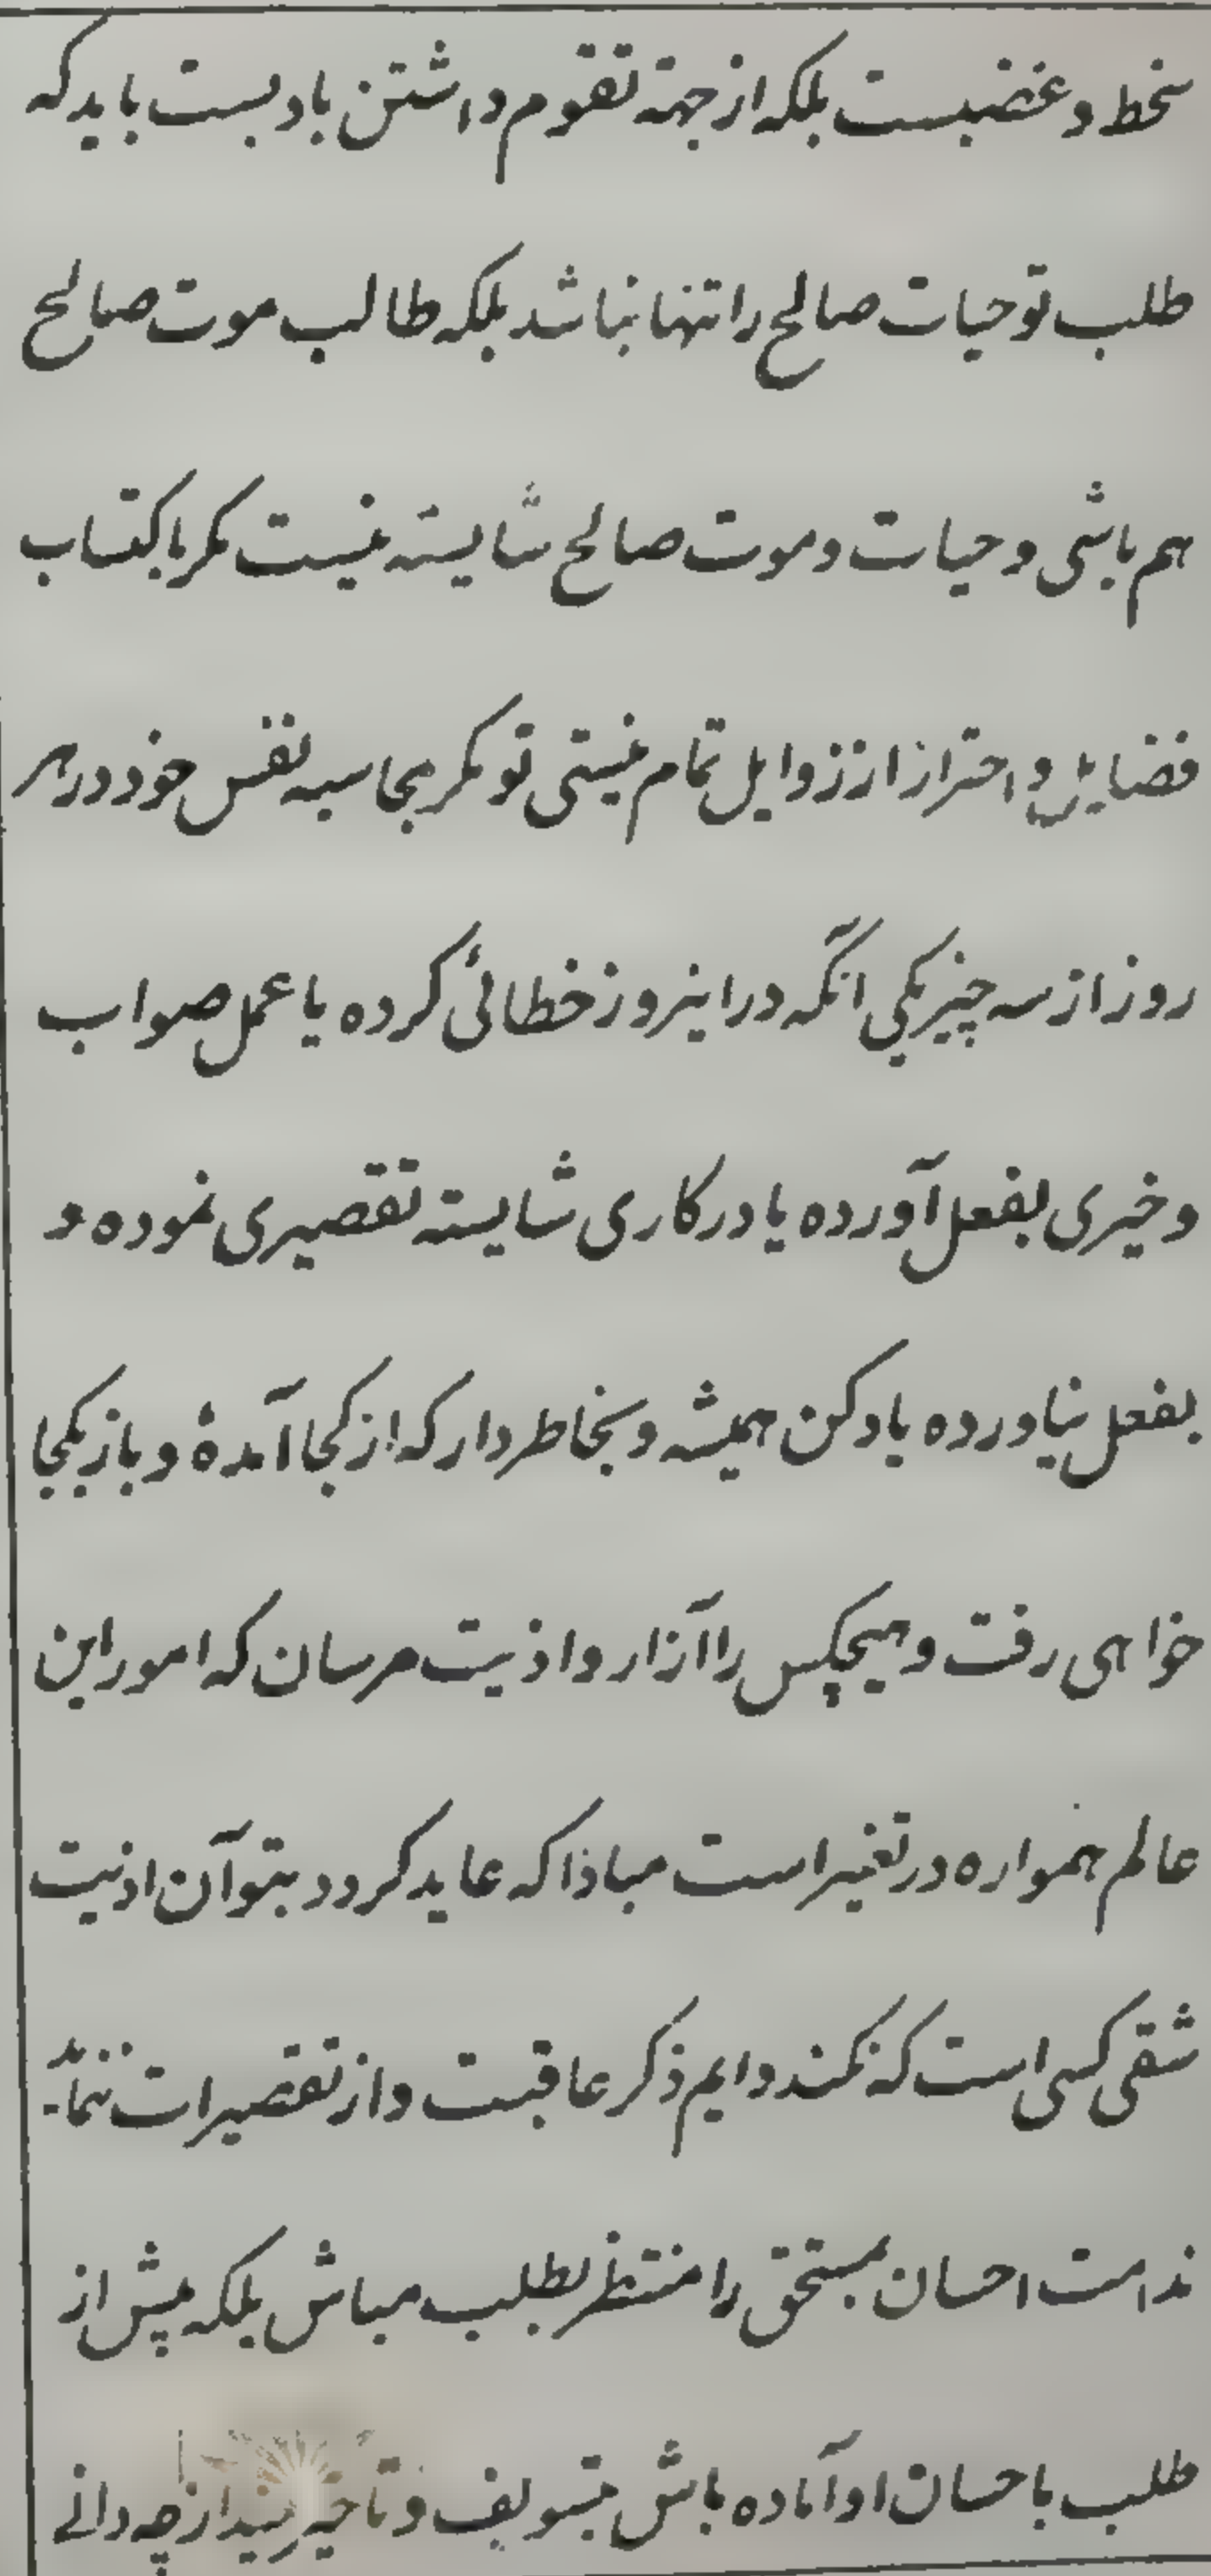 سخط و غضبست بلکه از جهة تقوم داشتن بادبست باید که
طلب تو حیات صالح را تنها نباشد بلکه طالب موت صالح
هم باشی و حیات و موت صالح شایسته نیست مکر باکتساب
فضایل و احتراز از زوایل تمام نیستی تو مکر بمحاسبه نفس خود در هر
روز از سه چیز یکی آنکه در اینروز خطائی کرده یا عمل صواب
و خیری بفعل آورده یا در کاری شایسته تقصیری نموده و
بفعل نیاورده یاد کن همیشه و بخاطر دار که از کجا آمدهٔ و باز بکجا
خواهی رفت و هیچکس را آزار و اذیت مرسان که امور این
عالم همواره در تغیر است مباذا که عاید کردد بتو آن اذیت
شقی کسی است که نکند دایم ذکر عاقبت و از تقصیرات ننماید
ندامت احسان بمستحق را منتظر بطلب مباش بلکه پیش از
طلب باحسان او آماده باش بتسویف و تاخیر مینداز چه دانی